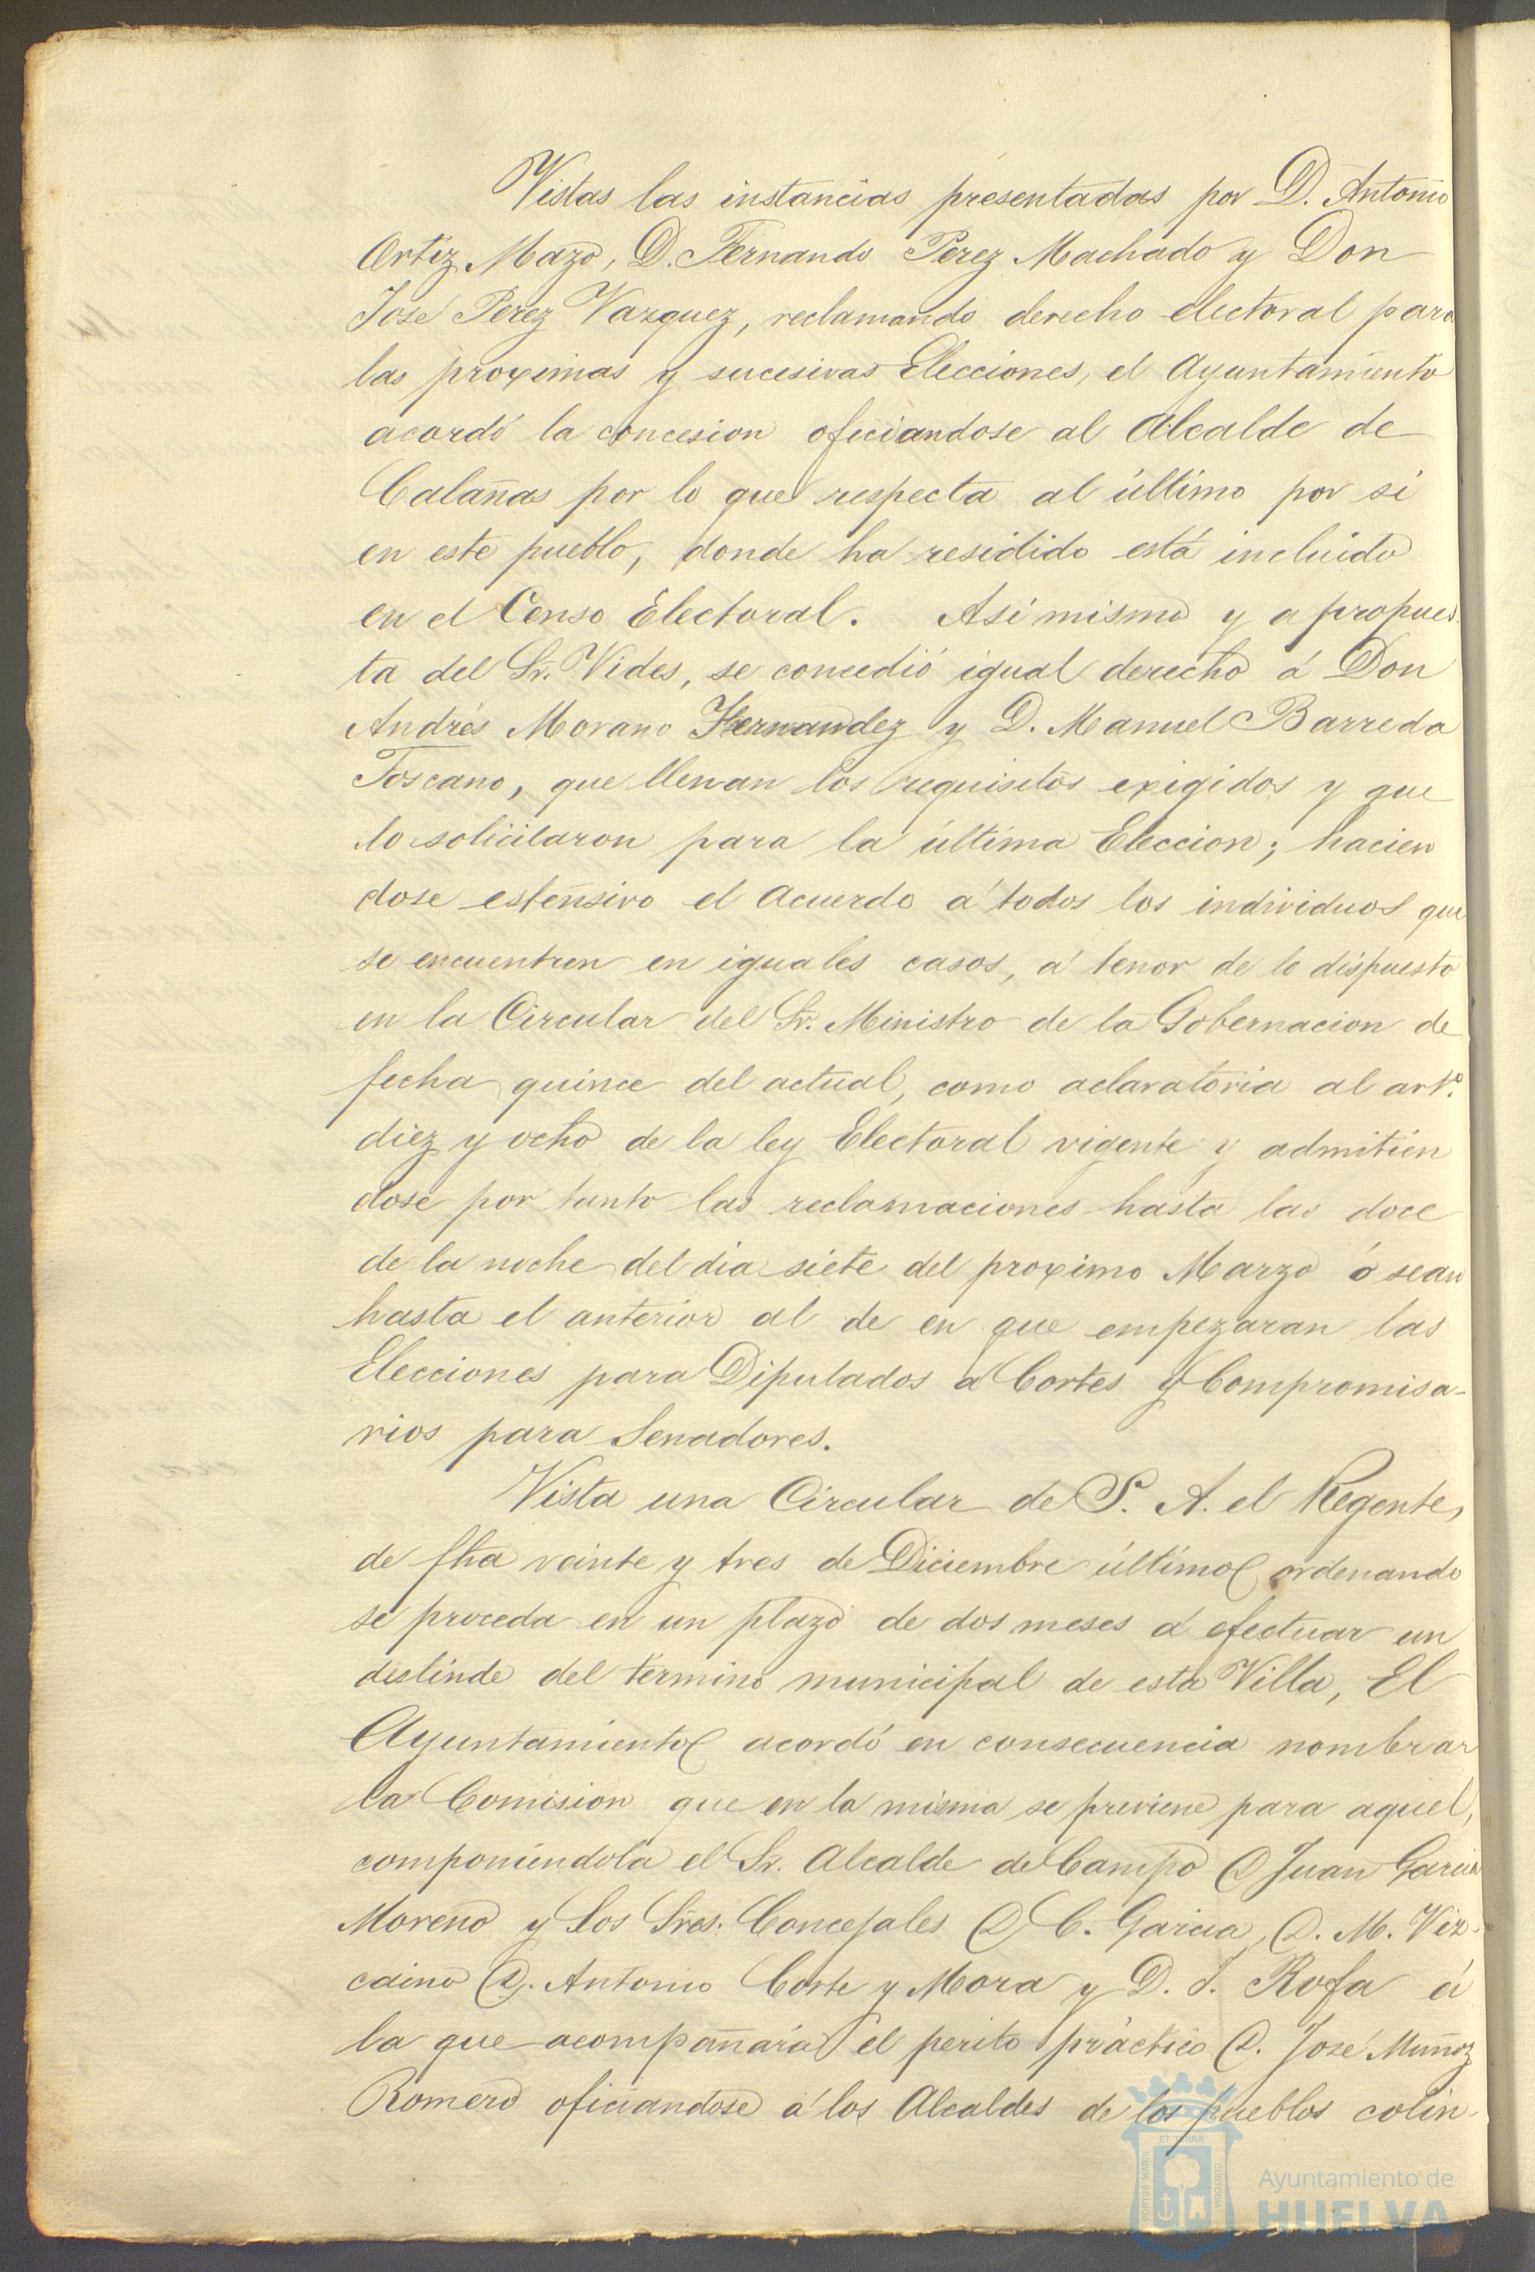 Vistas las instancias presentadas por D. Antonio
Ortiz Mazo, D. Fernando Perez Machado y Don
José Perez Vazquez, reclamando derecho electoral para
las proximas y sucesivas Elecciones, el Ayuntamiento
acordó la concesion oficiandose al Alcalde de
Calañas por lo que respecta al último por si
en este pueblo, donde ha residido está incluido
en el Censo Electoral. Asi mismo y a propues
ta del Sr. Vides, se concedió igual derecho á Don
Andrés Morano Hernandez y D. Manuel Barreda
Toscano, que llenan los requisitos exigidos y que
lo solicitaron para la última Eleccion; hacien
dose estensivo el acuerdo á todos los individuos que
se encuentren en iguales casos, á tenor de lo dispuesto
en la Circular del Sr. Ministro de la Gobernacion de
fecha quince del actual, como aclaratoria al artº.
diez y ocho de la ley Electoral vigente y admitien
dose por tanto las reclamaciones hasta las doce
de la noche del dia siete del proximo Marzo ó sean
hasta el anterior al de en que empezaran las
Elecciones para Diputados a Cortes y Compromisa-
rios para Senadores.
Vista una Circular de S. A. el Regente,
de fha veinte y tres de Diciembre último ordenando
se proceda en un plazo de dos meses á efectuar un
deslinde del termino municipal de esta Villa, El
Ayuntamiento acordó en consecuencia nombrar
la Comision que en la misma se previene para aquel,
componiendola el Sr. Alcalde de Campo D Juan Garcia
Moreno y los Sres. Concejales D C. Garcia, D. M. Viz-
caino D. Antonio Corte y Mora y D. J. Rofa á
la que acompañará el perito práctico D. José Muñoz
Romero oficiandose á los Alcaldes de los pueblos colin-
PORTUS MARIS
ET TERRÆ
CUSTODIA
Ayuntamiento de
HUELVA